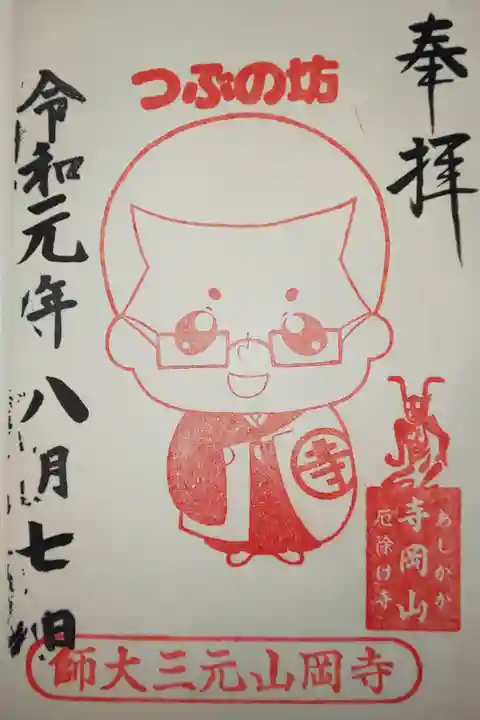 奉拝
つぶの坊
寺
あしかが
寺岡山
厄除け寺
師大三元山岡寺
令和元年八月七日